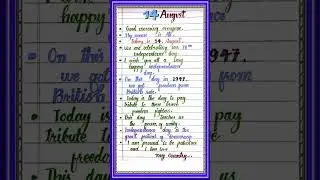 14 August
Good morning everyone.
My name is Ali.
Today is 14 August.
We are celebrating our
independence day.
I wish you all a very
happy independence
day.
On this day in 1947.
we got freedom from
British rule.
Today is the day to pay
tribute to those brave
freedom fighters.
This day teaches us
the power of unity.
Independence day is the
great festival of
I am proud to be pakistani
and I love
my country.
happy
On this
we got
British
Today is
tribute to
freedom
This day
1947.
from
pay